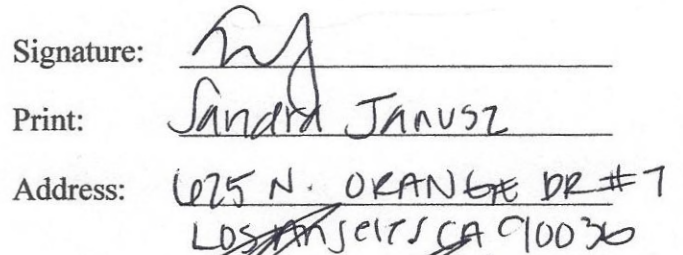 Signature:
Print: Sandra Janusz
Address: 625 N. ORANGE DR #7
LOS Angeles CA 90036